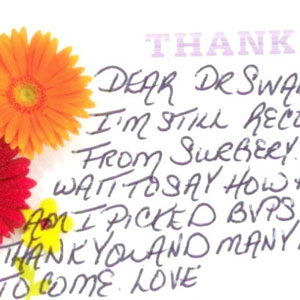 THANK
DEAR DR SWA
I'M STILL REC
FROM SURGERY.
WAIT TO SAY HOW
AM I PICKED BVPS
THANK YOU AND MANY
TO COME. LOVE